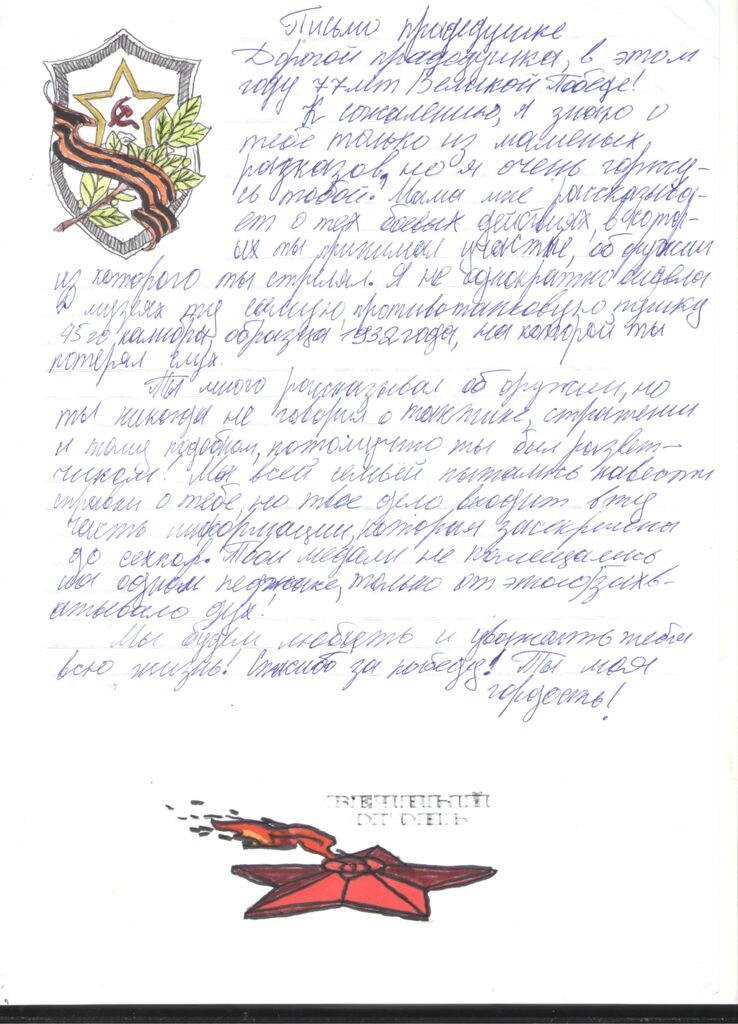 Письмо прадедушке
Дорогой прадедушка, в этом
году 77 лет Великой Победе!
К сожалению, я знаю о
тебе только из маменых
рассказов, но я очень горжу-
сь тобой! Мама мне рассказыва-
ет о тех боевых действиях, в котор-
ых ты принимал участие, об оружии
из которого ты стрелял. Я не однократно видела
в музеях ту самую, противотанковую, пушку
45го, калибра, образца 1932 года, на которой ты
потерял слух.
Ты много рассказывал об оружии, но
ты никогда не говорил о тактике, стражении
и тому подобном, потому что ты был развет-
чиком! Мы всей семьёй пытались навести
справки о тебе, но твое дело входит в ту
часть информации, которая засекречена
до сех пор. Твои медали не помещались
на одном педжаке, только от этого
атывало дух!
Мы будем любить и уважать тебя
всю жизнь! Спасибо за победу! Ты моя
гордость!
ВЕЧНЫЙ
ОГОНЬ